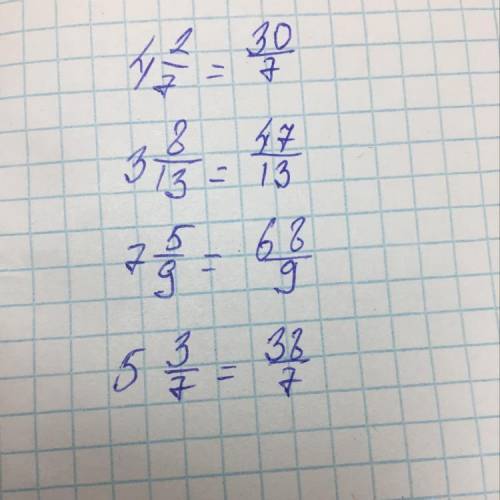 4 2/7 = 30/7
3 8/13 = 47/13
7 5/9 = 68/9
5 3/7 = 38/7